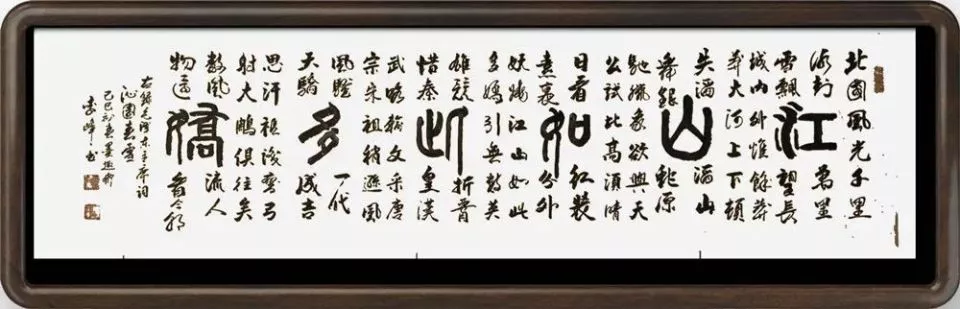 北國風光千里
冰封萬里
江
雪飄望長
城內外惟餘莽
莽大河上下頓
失滔滔山
山
舞銀蛇原
馳蠟象欲與天
公試比高須晴
日看紅裝
如
素裹分外
妖嬈江山如此
多嬌引無數英
雄競折腰
此
惜秦皇漢
武略輸文采唐
宗宋祖稍遜風
騷一代
多
天驕成吉
思汗祗識彎弓
射大鵰俱往矣
數風流人
嬌
物還看今朝
右錄毛澤東主席詞
沁園春雪